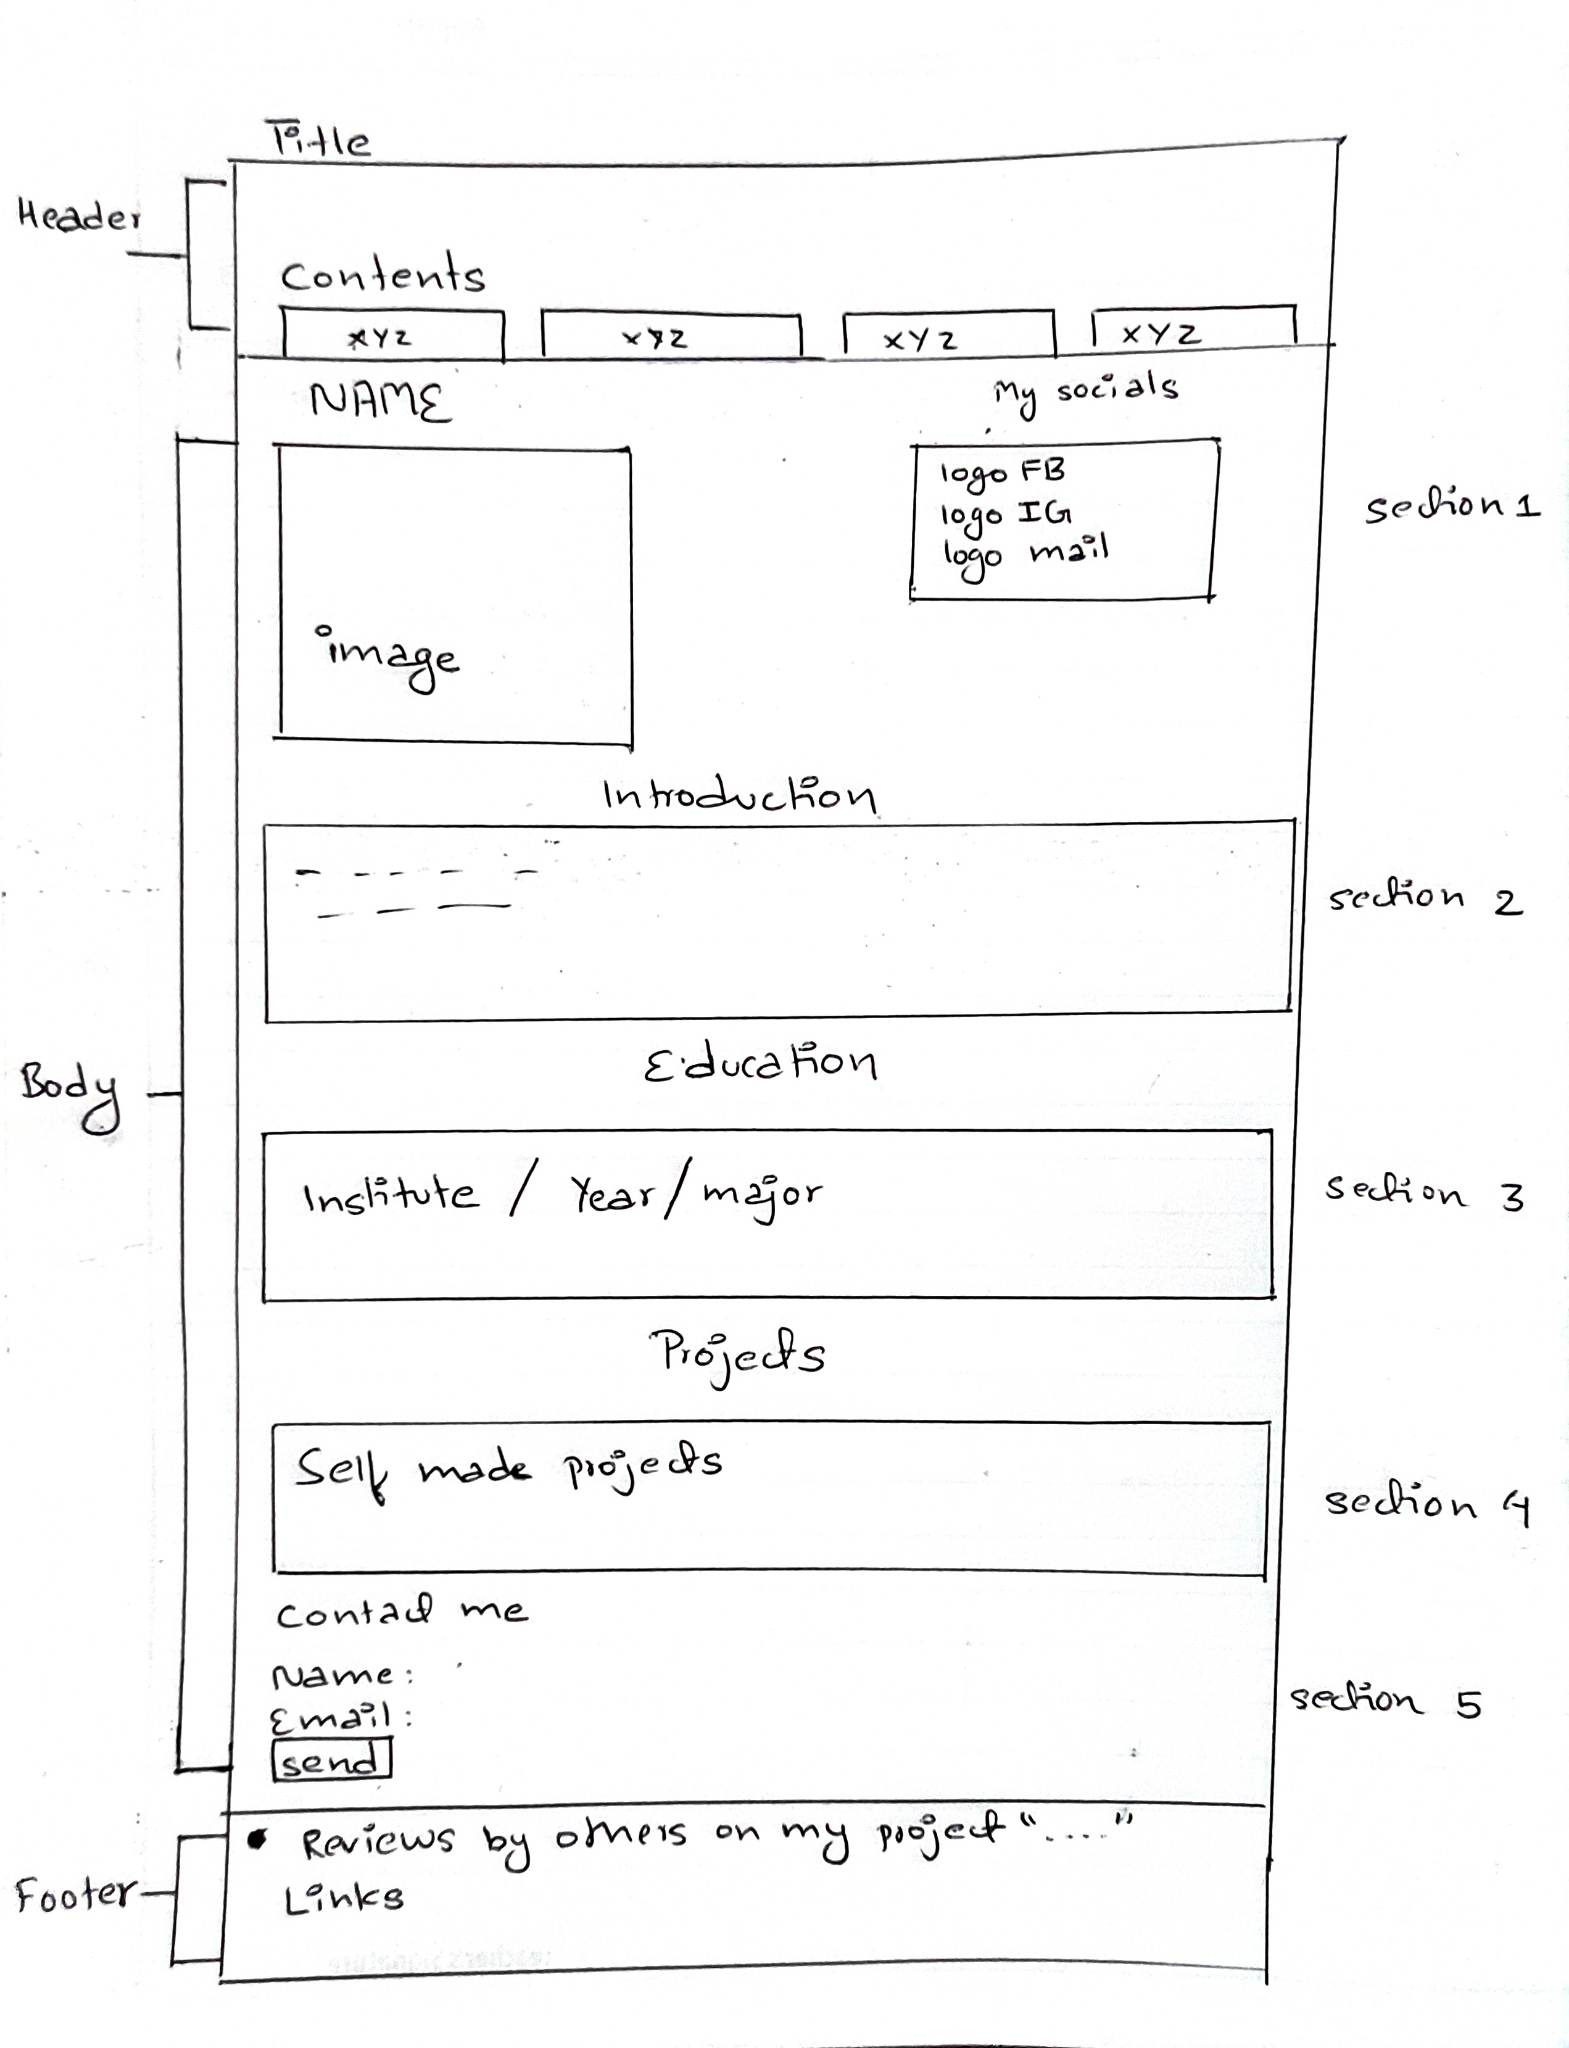 Title
Header
Contents
XYZ XYZ XYZ XYZ
NAME
My socials
logo FB
logo IG
logo mail
section 1
image
Introduction
section 2
Body
Education
Institute / Year / major
section 3
Projects
Self made projects
section 4
Contact me
Name:
Email:
send
section 5
• Reviews by others on my project "...."
Links
Footer